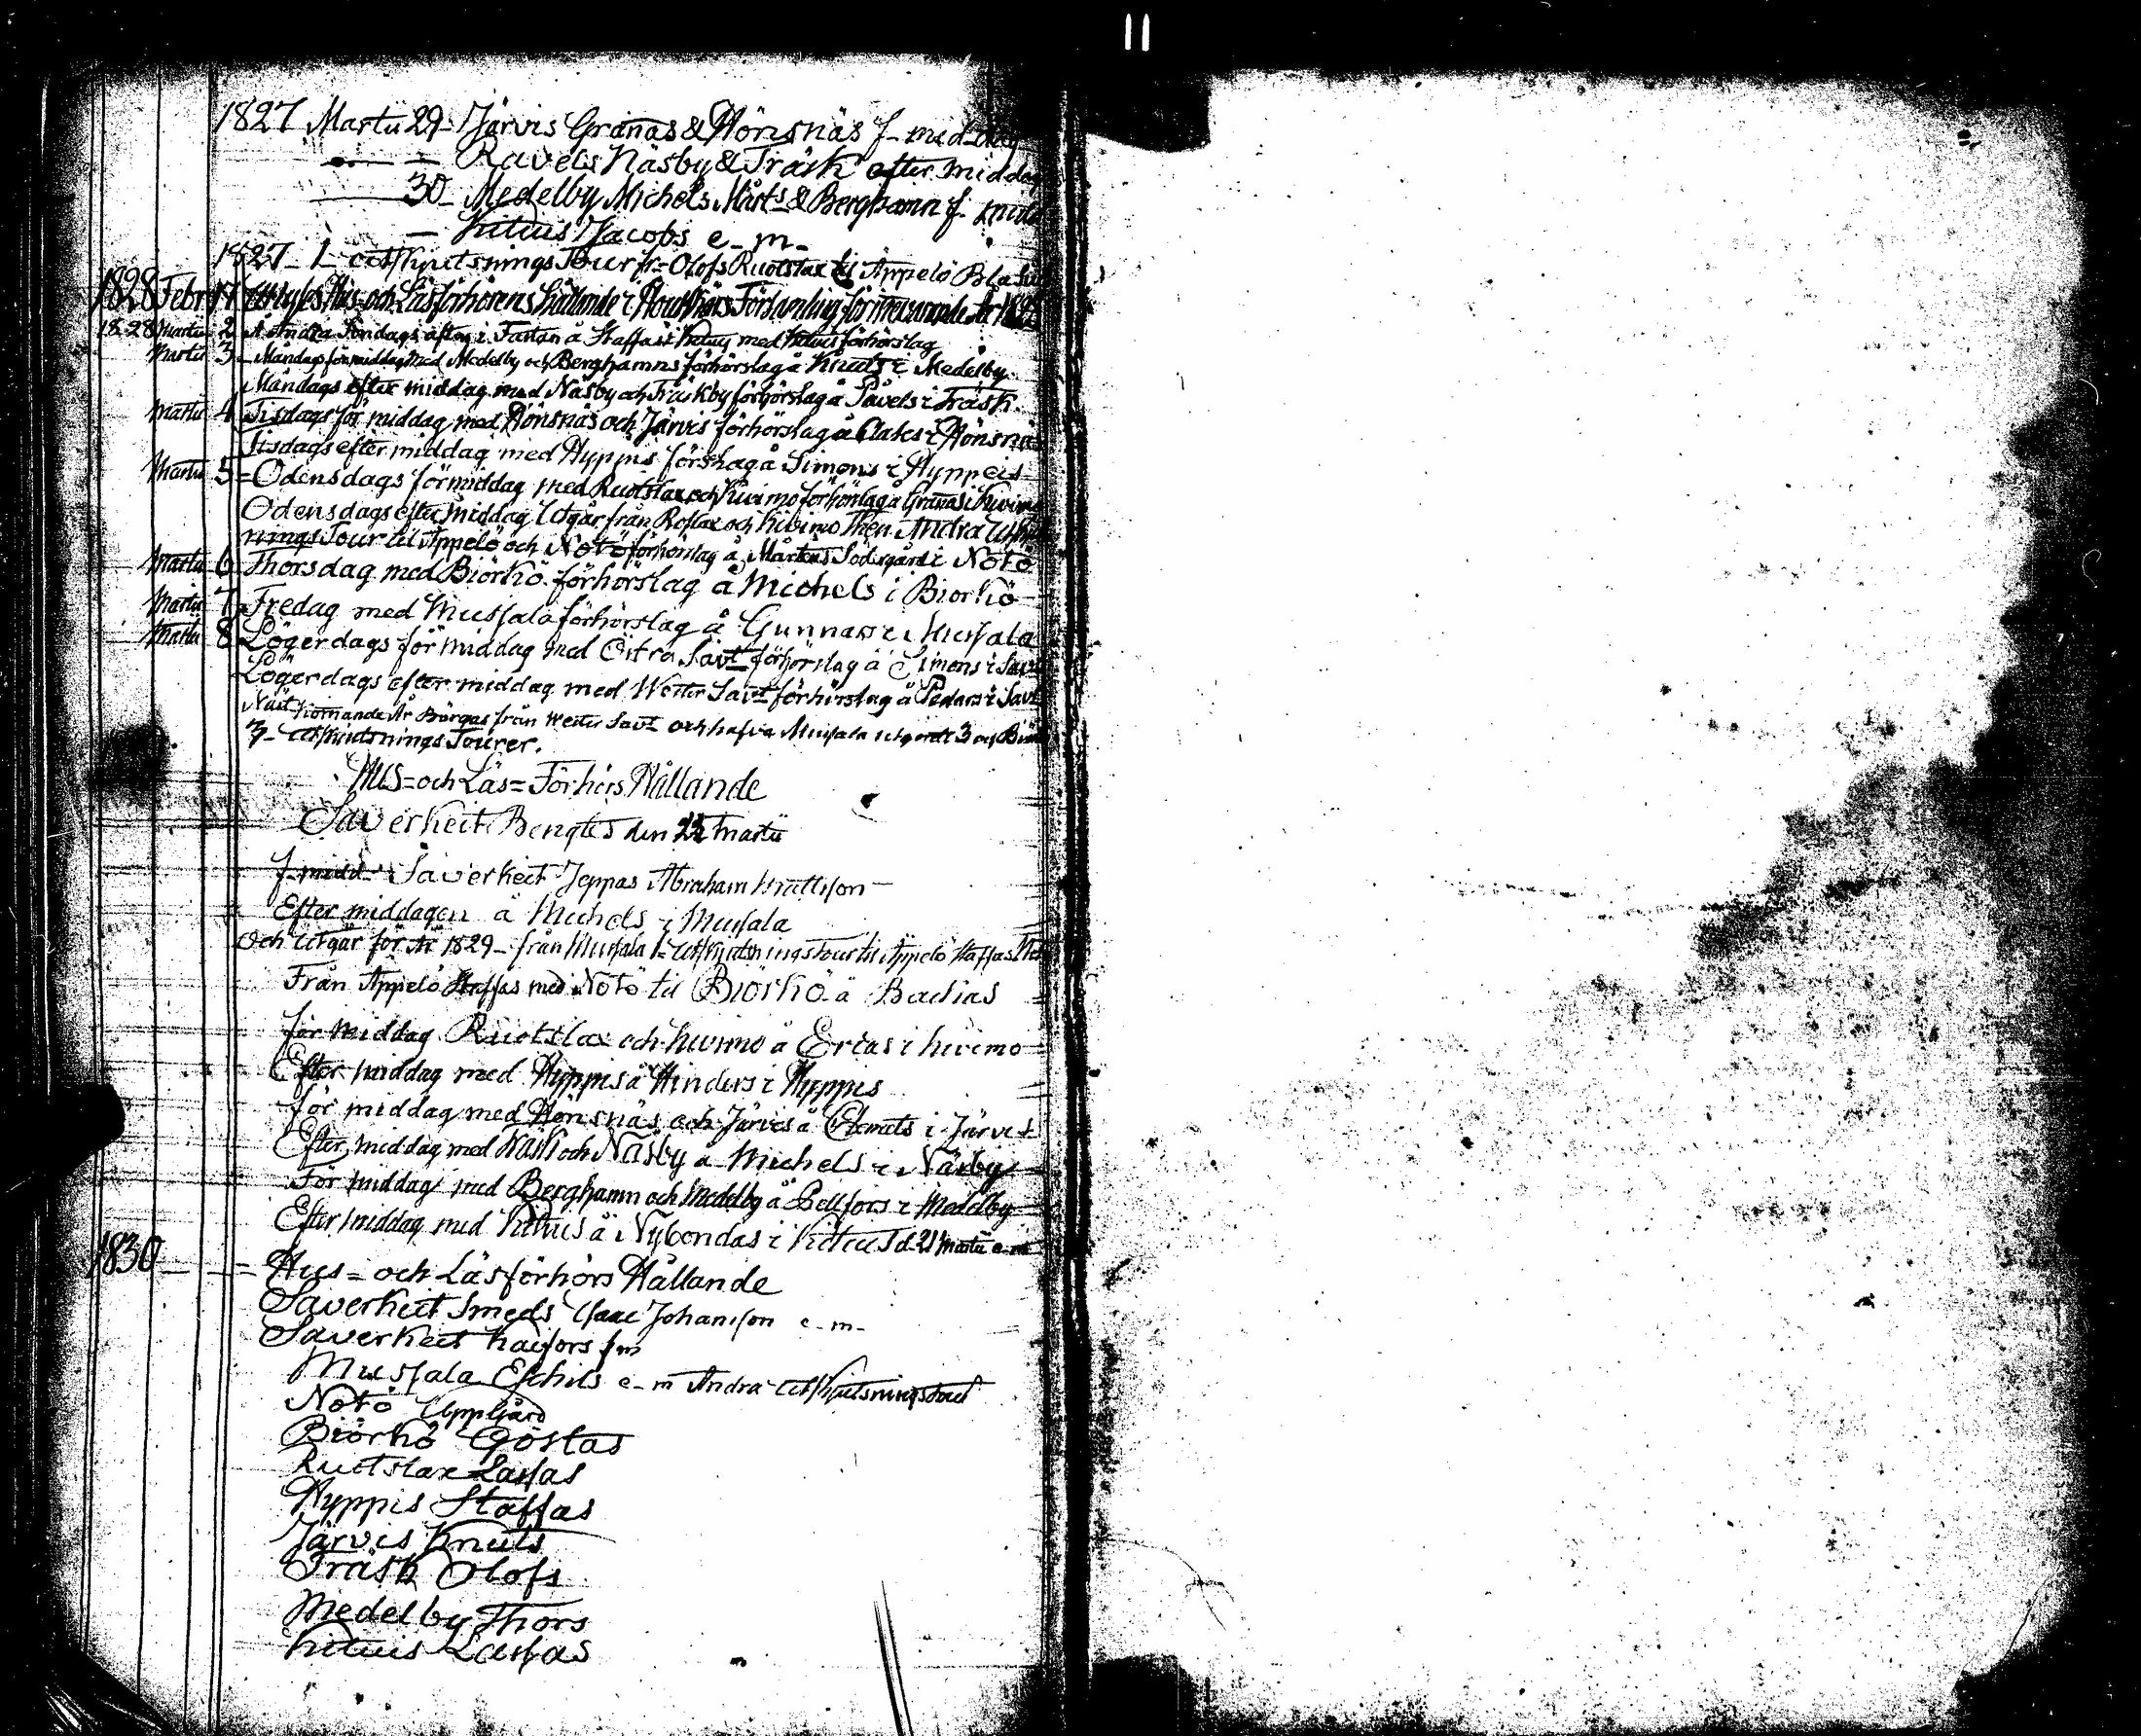 11
1827 Martii 29 - Järvis Granas & Hönsnäs f-mid-dag
— Ravels Näsby & Träsk efter middag
30 - Medelby Michels Mårts & Berghamn f- midd
— Kituis Jacobs e-m-
1827 - 1 - utskjutsnings Tour fr= Olofs Ruotslax til Appelö
1828 Febr 17 Hus- och Läsförhörens hållande i Houtskärs Församling för innevarande År 1828
1828 Martii 2 Söndags afton i Fastan å Staffas i Kituis med Kituis förhörslag
Martii 3 - Måndags förmiddag med Medelby och Berghamns förhörslag å Knuts i Medelby
Måndags efter middag med Näsby och Träskby förhörslag å Påvels i Träsk.
Martii 4 Tisdags för middag med Hönsnäs och Järvis förhörslag å Clales i Hönsnäs
Tisdags efter middag med Hyppis förslag å Simons i Hyppeis
Martii 5 = Odensdags förmiddag med Ruotslax och Kivimo förhörslag å Granas i Kivimo
Odensdags efter middag Utgår från Roslax och Kivimo Then Andra
nings Tour til Appelö och Nötö förhörslag å Mårtens Södergård i Nötö
Martii 6 Thorsdag med Biörkö förhörslag å Michels i Biorkö
Martii 7 Fredag med Mussala förhörslag å Gunnars i Mussala
Martii 8 Lögerdags för middag med Östra Savt förhörslag å Simons i Savt
Lögerdags efter middag med Wester Savt förhörslag å Pedars i Savt
Näst kommande År Börgas från Wester Savt och hafva Mussala utgordt 3 och
3 - utskjutsnings Tourer.
Hus = och Läs = Förhörs Hållande
Saverkeit Bengts den 22 Martii
f-midd- Saverkeit Jeppas Abraham Mattsson
Efter middagen å Michels i Mussala
Och Utgår för År 1829 - från Mussala 1= utskjutsnings Tour til Appelö Staffas
Från Appelö Staffas med Nötö til Biörkö å Backas
för middag Ruotslax och Kivimo å Ercas i Kivimo
Efter middag med Hyppis å Hinders i Hyppis
för middag med Hönsnäs och Järvis å Clemets i Järvis
Efter middag med Träsk och Näsby å Michels i Näsby
För middag med Berghamn och Medelby å Bellfors i Medelby
Efter middag med Kituis å Nybondas i Kituis d. 21 Martii e-m
1830 — = Hus = och Läsförhörs Hållande
Saverkeit Smeds Isaac Johansson e-m-
Saverkeit Kaifors fm
Mussala Eskils e-m Andra utskjutsnings tour
Nötö Uppgård
Biörkö Göstas
Ruotslax Lassas
Hyppis Staffas
Järvis Knuts
Träsk Olofs
Medelby Thors
Kituis Lassas